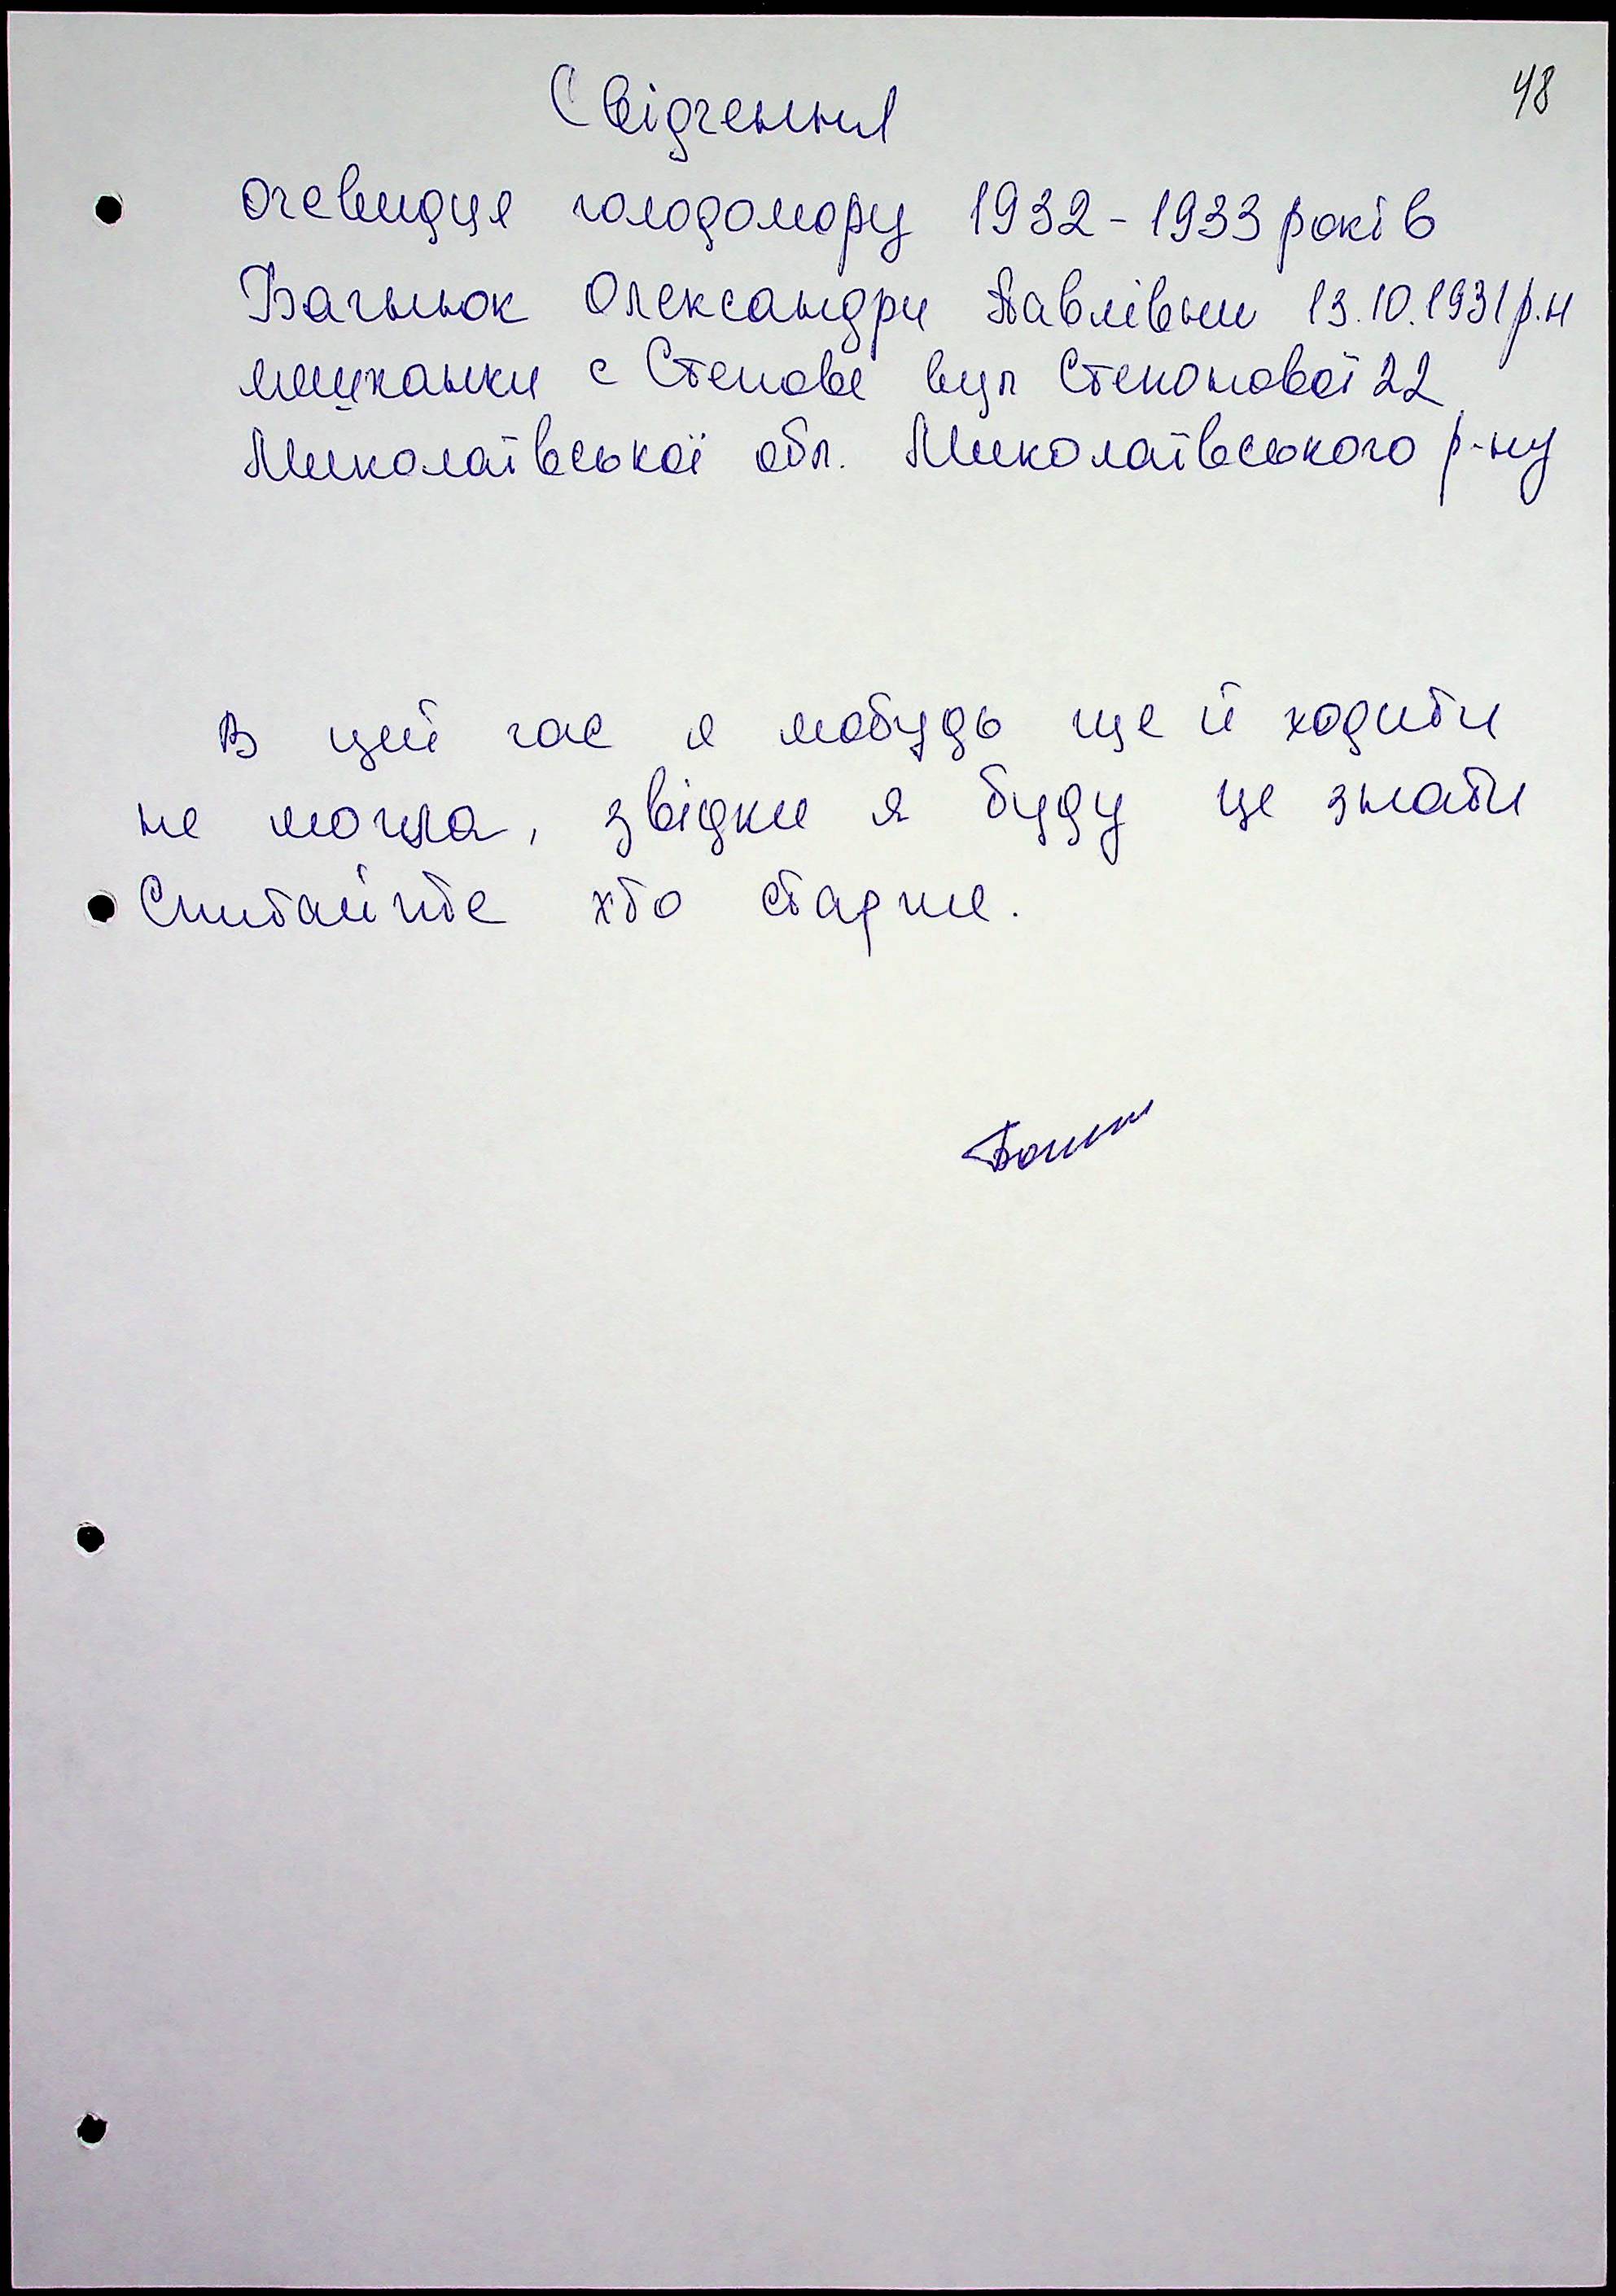 48
Свідчення
очевидця голодомору 1932-1933 років
Багнюк Олександри Павлівни 13.10.1931 р.н
мешканки с Степове вул Степанової 22
Миколаївської обл. Миколаївського р-ну
В цей час я мабудь ще й ходити
не могла, звідки я буду це знати
Спитайтте хто старше.